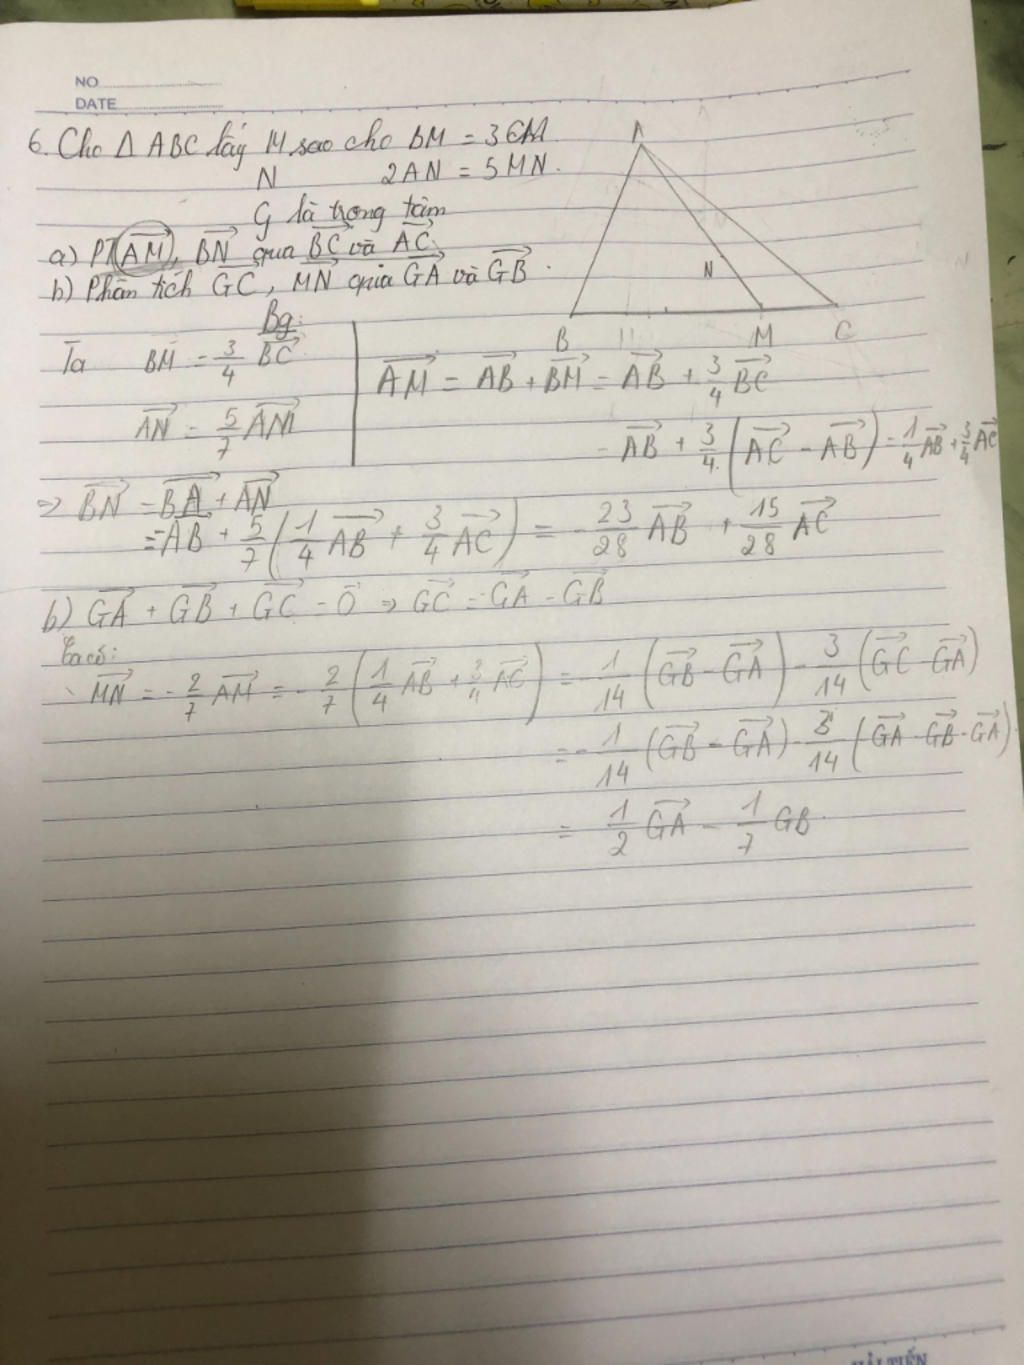 NO
DATE
6. Cho Δ ABC lấy M sao cho BM = 3CM
N 2AN = 5MN.
G là trọng tâm
a) PT AM, BN qua BC và AC
b) Phân tích GC, MN qua GA và GB.
A
N
B M C
Bg:
Ta BM = 3/4 BC
AN = 5/7 AM
AM = AB + BM = AB + 3/4 BC
= AB + 3/4 (AC - AB) = 1/4 AB + 3/4 AC
=> BN = BA + AN
= -AB + 5/7 (1/4 AB + 3/4 AC) = -23/28 AB + 15/28 AC
b) GA + GB + GC = 0 => GC = -GA - GB
Ta có:
MN = -2/7 AM = -2/7 (1/4 AB + 3/4 AC) = -1/14 (GB - GA) - 3/14 (GC - GA)
= -1/14 (GB - GA) - 3/14 (-GA - GB - GA)
= 1/2 GA - 1/7 GB.
HẢI TIẾN